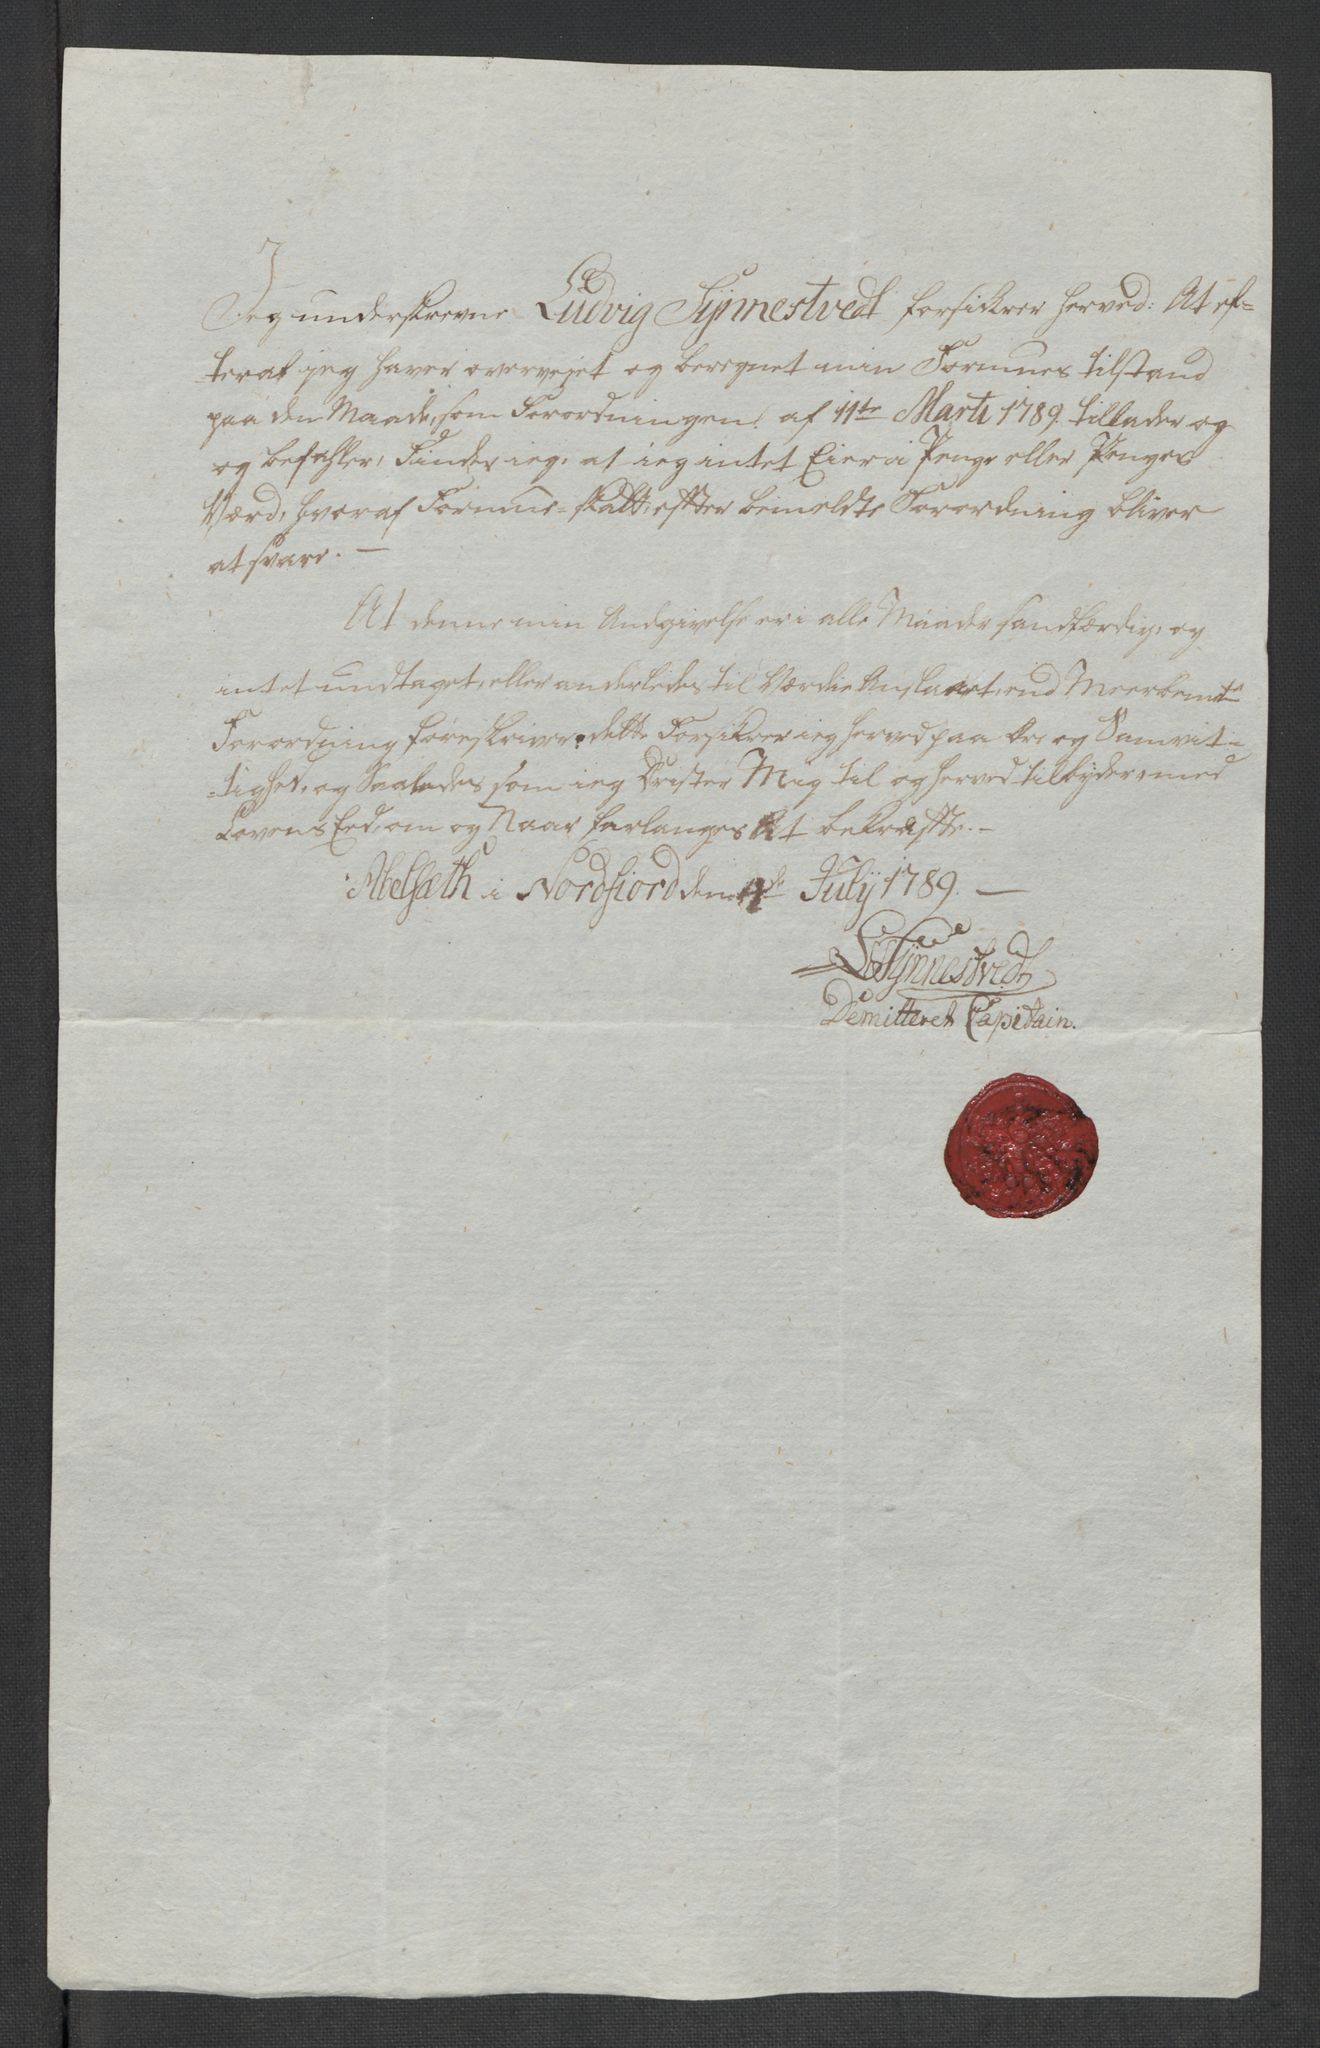 Jeg underskrevne Ludvig Synnestvedt forsikrer herved: At ef-
teraf jeg haver overvejet og beregnet min Formues tilstand
paa den Maade, som Forordningen af 11te Marti 1789. tillader og
og befahler, Finder ieg, at ieg intet Eier i Penge eller Penges
Værd, hvoraf Formue-skatt, effter bemeldte Forordning bliver
at svare. —
At denne min Andgivelse er i alle Maader sandfærdig, og
intet undtaget, eller anderledes til Værdie Anslaaet, end Meerbemte
Forordning foreskriver, dette Forsikrer ieg herved paa Ære og Samvit-
-tighed, og Saaledes som ieg Drister Mig til og herved tilbyder, med
Lovens Eed, om og Naar forlanges At bekræffte. —
Abelsæth i Nordfiord den 4de Julij 1789. —
LSynnestvedt
Demitteret Capitain.